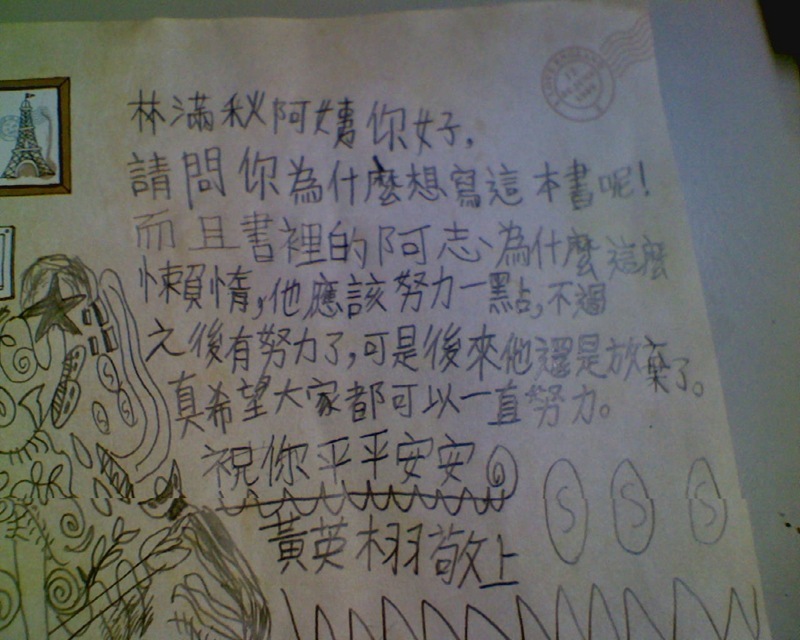 林滿秋阿姨你好,
請問你為什麼想寫這本書呢!
而且書裡的阿志、為什麼這麼
懶惰,他應該努力一點,不過
之後有努力了,可是後來他還是放棄了。
真希望大家都可以一直努力。
祝你平平安安
S S S
黃英栩敬上